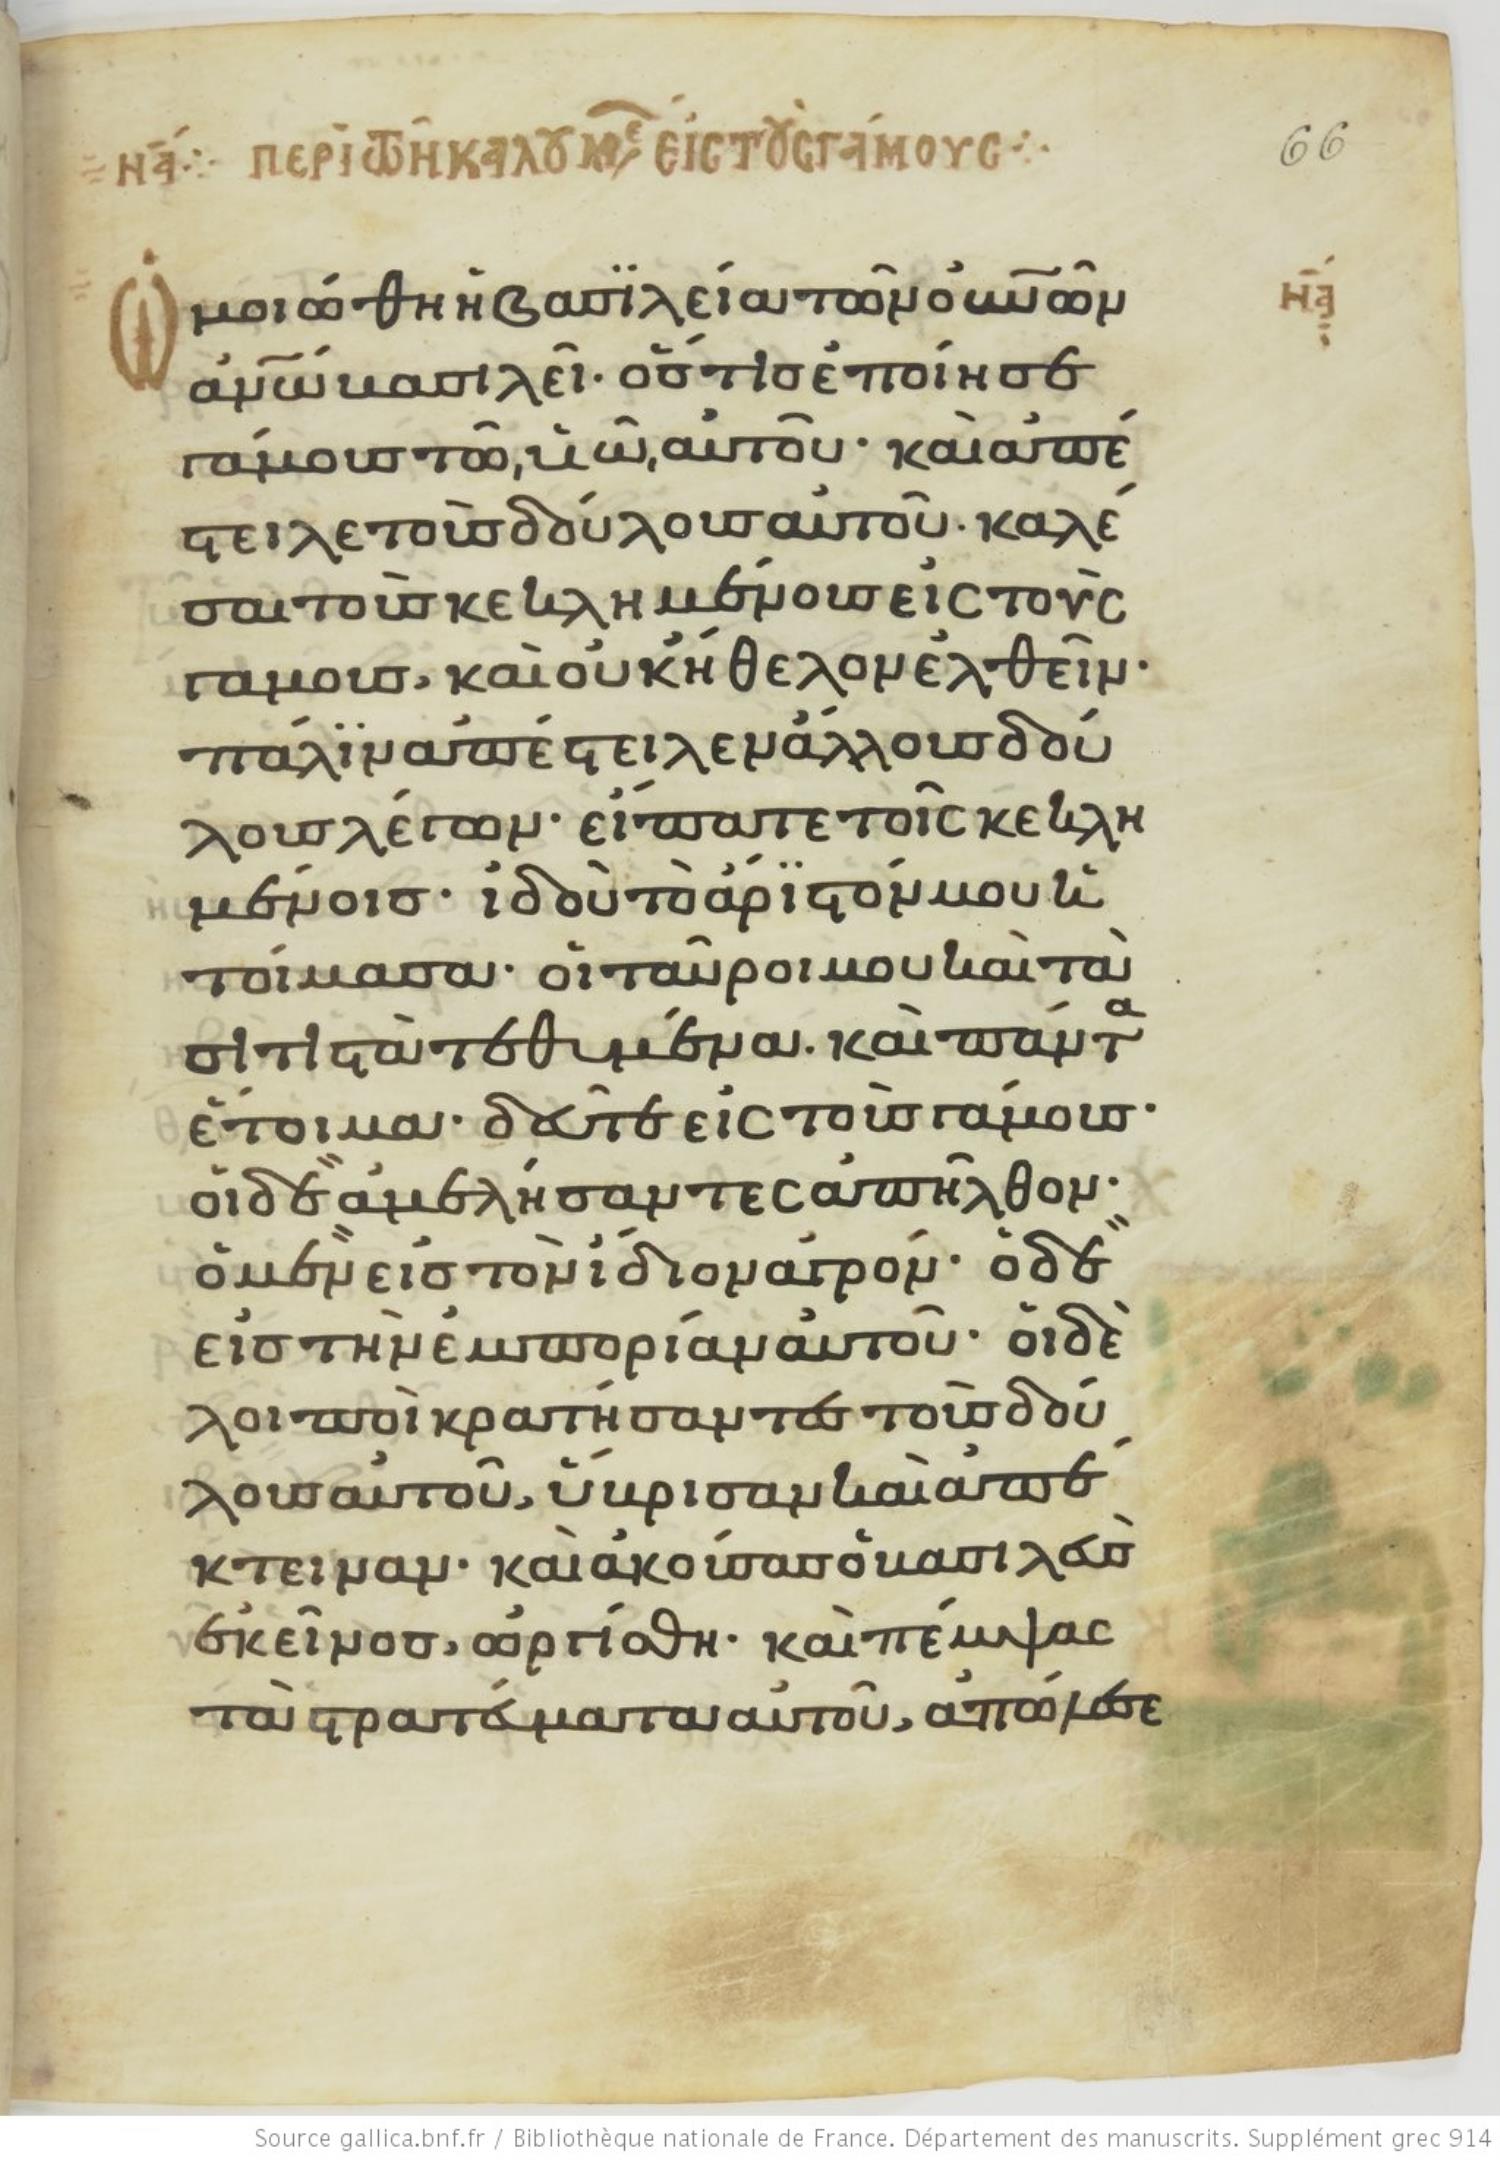 ΝΑ ΠΕΡΙ ΤῶΝ ΚΑΛΟΥΜε ΕΙΣ ΤΟΥΣ ΓΑΜΟΥΣ
66
Ὡμοιώθη ἡ βασϊλεία τῶν οὐνῶν
να
ἀνῶ βασιλεῖ· ὅστις ἐποίησε
γάμους τῶ ὑιῶ αὐτοῦ· καὶ ἀπέ
στειλε τοὺς δούλους αὐτοῦ· καλέ
σαι τοὺς κεκλημένους εἰς τοὺς
γαμους, καὶ οὐκ ἤθελον ἐλθεῖν·
πάλϊν ἀπέστειλεν ἄλλους δού
λους λέγων· εἴπατε τοῖς κεκλη
μένοις· ἰδοὺ τὸ ἄρϊστόν μου ἡ
τοίμασα· οἱ ταῦροι μου καὶ τὰ
σιτιστὰ τεθυμένα· καὶ πάντα
ἕτοιμα· δεῦτε εἰς τοὺς γάμους·
οἱ δὲ ἀμελήσαντες ἀπῆλθον·
ὁ μὲν εἰς τὸν ἴδιον ἀγρόν· ὁ δὲ
εἰς τὴν ἐμπορίαν αὐτοῦ· οἱ δὲ
λοιποὶ κρατήσαντες τοὺς δού
λους αὐτοῦ, ὕβρισαν καὶ ἀπέ
κτειναν· καὶ ἀκούσας ὁ βασιλεὺς
ἐκεῖνος, ὠργίσθη· καὶ πέμψας
τὰ στρατεύματα αὐτοῦ, ἀπώλεσε
Source gallica.bnf.fr / Bibliothèque nationale de France. Département des manuscrits. Supplément grec 914